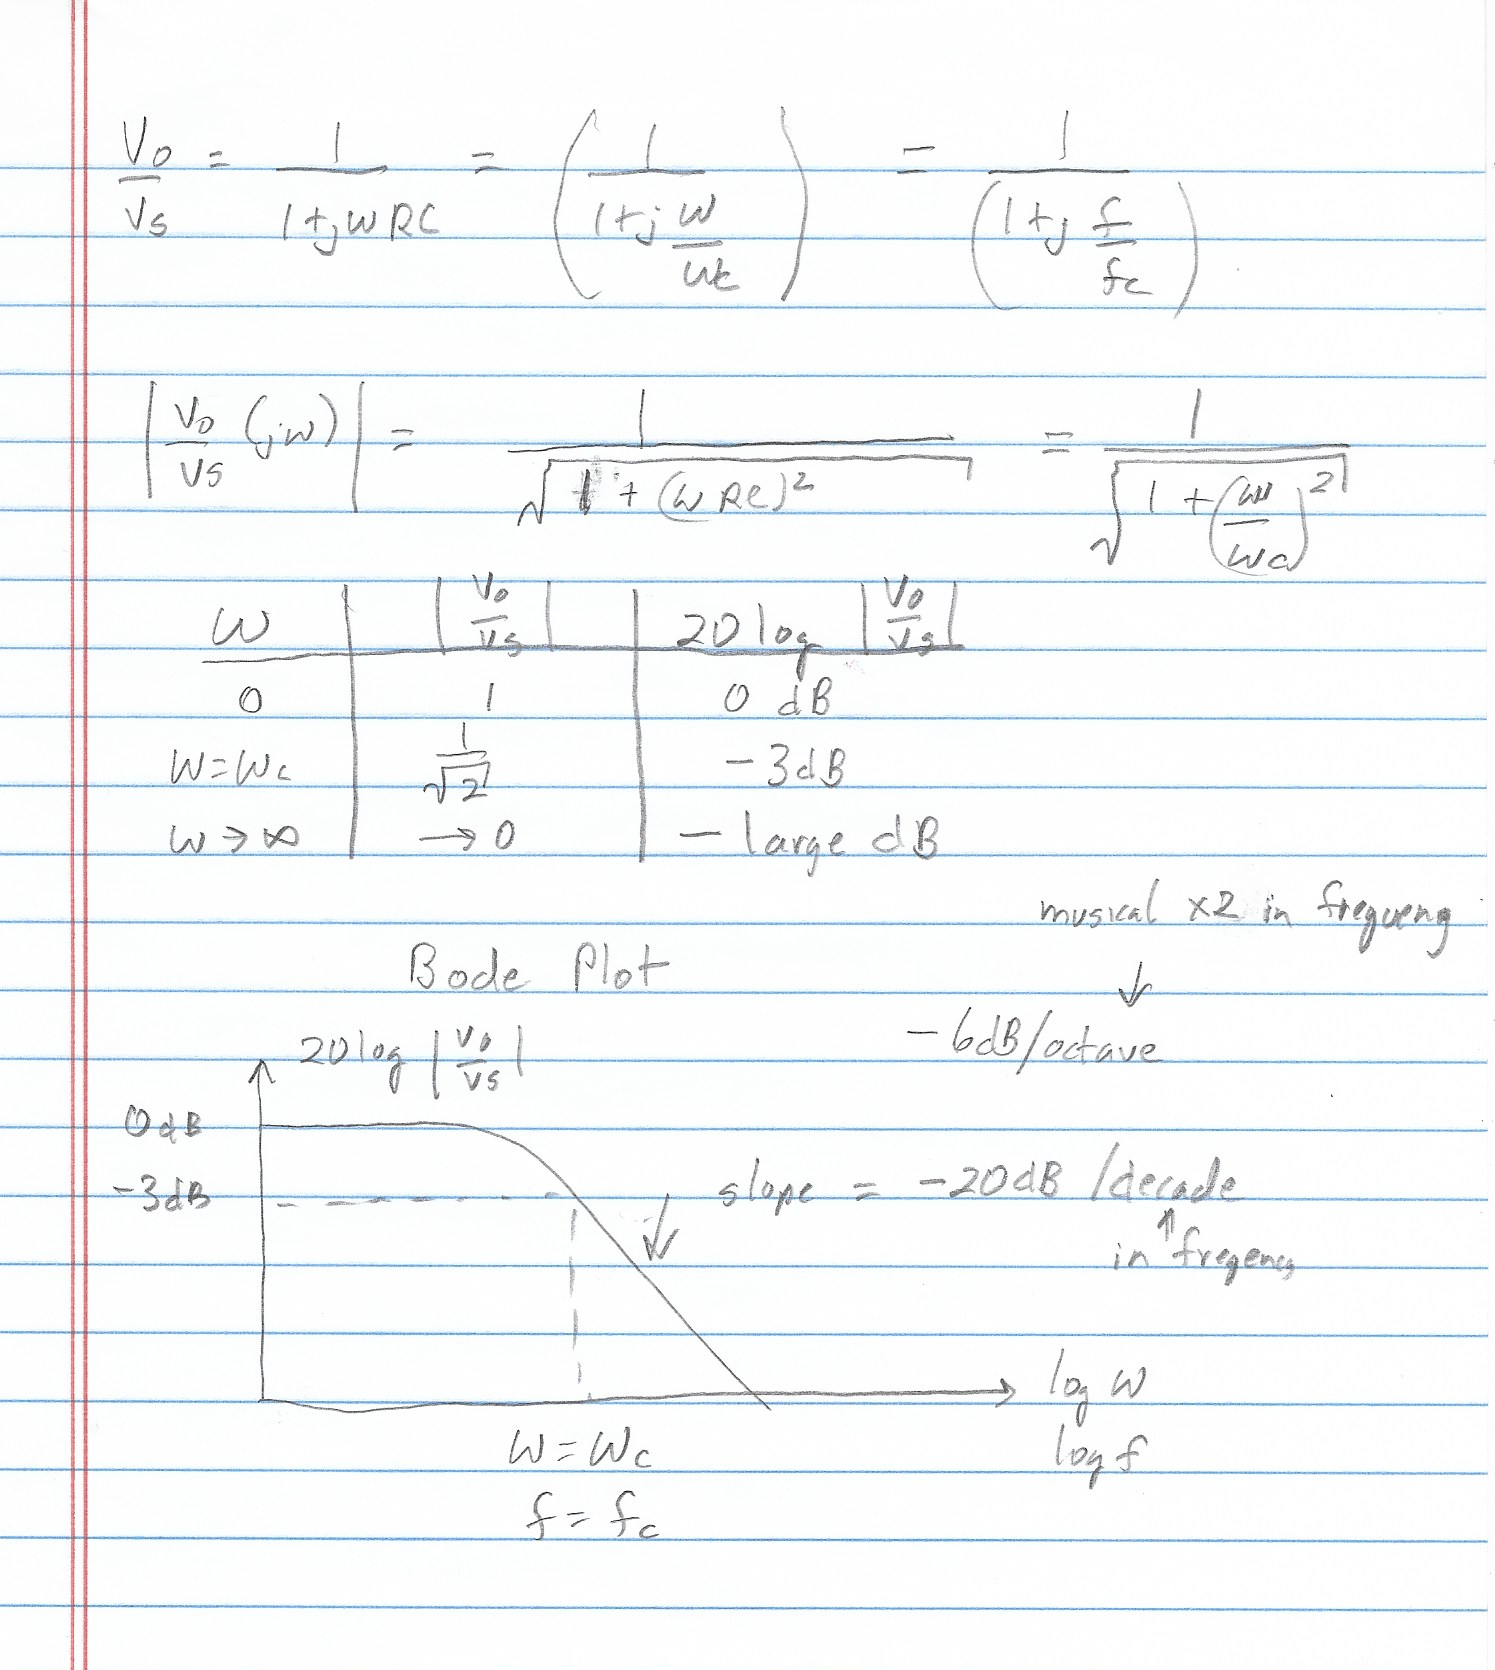 Vo/Vs = 1/(1+jωRC) = (1/(1+j ω/ωc)) = 1/(1+j f/fc)
|Vo/Vs (jω)| = 1/√(1+(ωRC)²) = 1/√(1+(ω/ωc)²)
ω | |Vo/Vs| | 20 log |Vo/Vs|
0 | 1 | 0 dB
ω=ωc | 1/√2 | -3dB
ω→∞ | →0 | - large dB
musical x2 in frequency
↓
Bode Plot
-6dB/octave
20 log |Vo/Vs|
0dB
-3dB
slope = -20dB /decade
↑
in freqency
log ω
log f
ω=ωc
f=fc